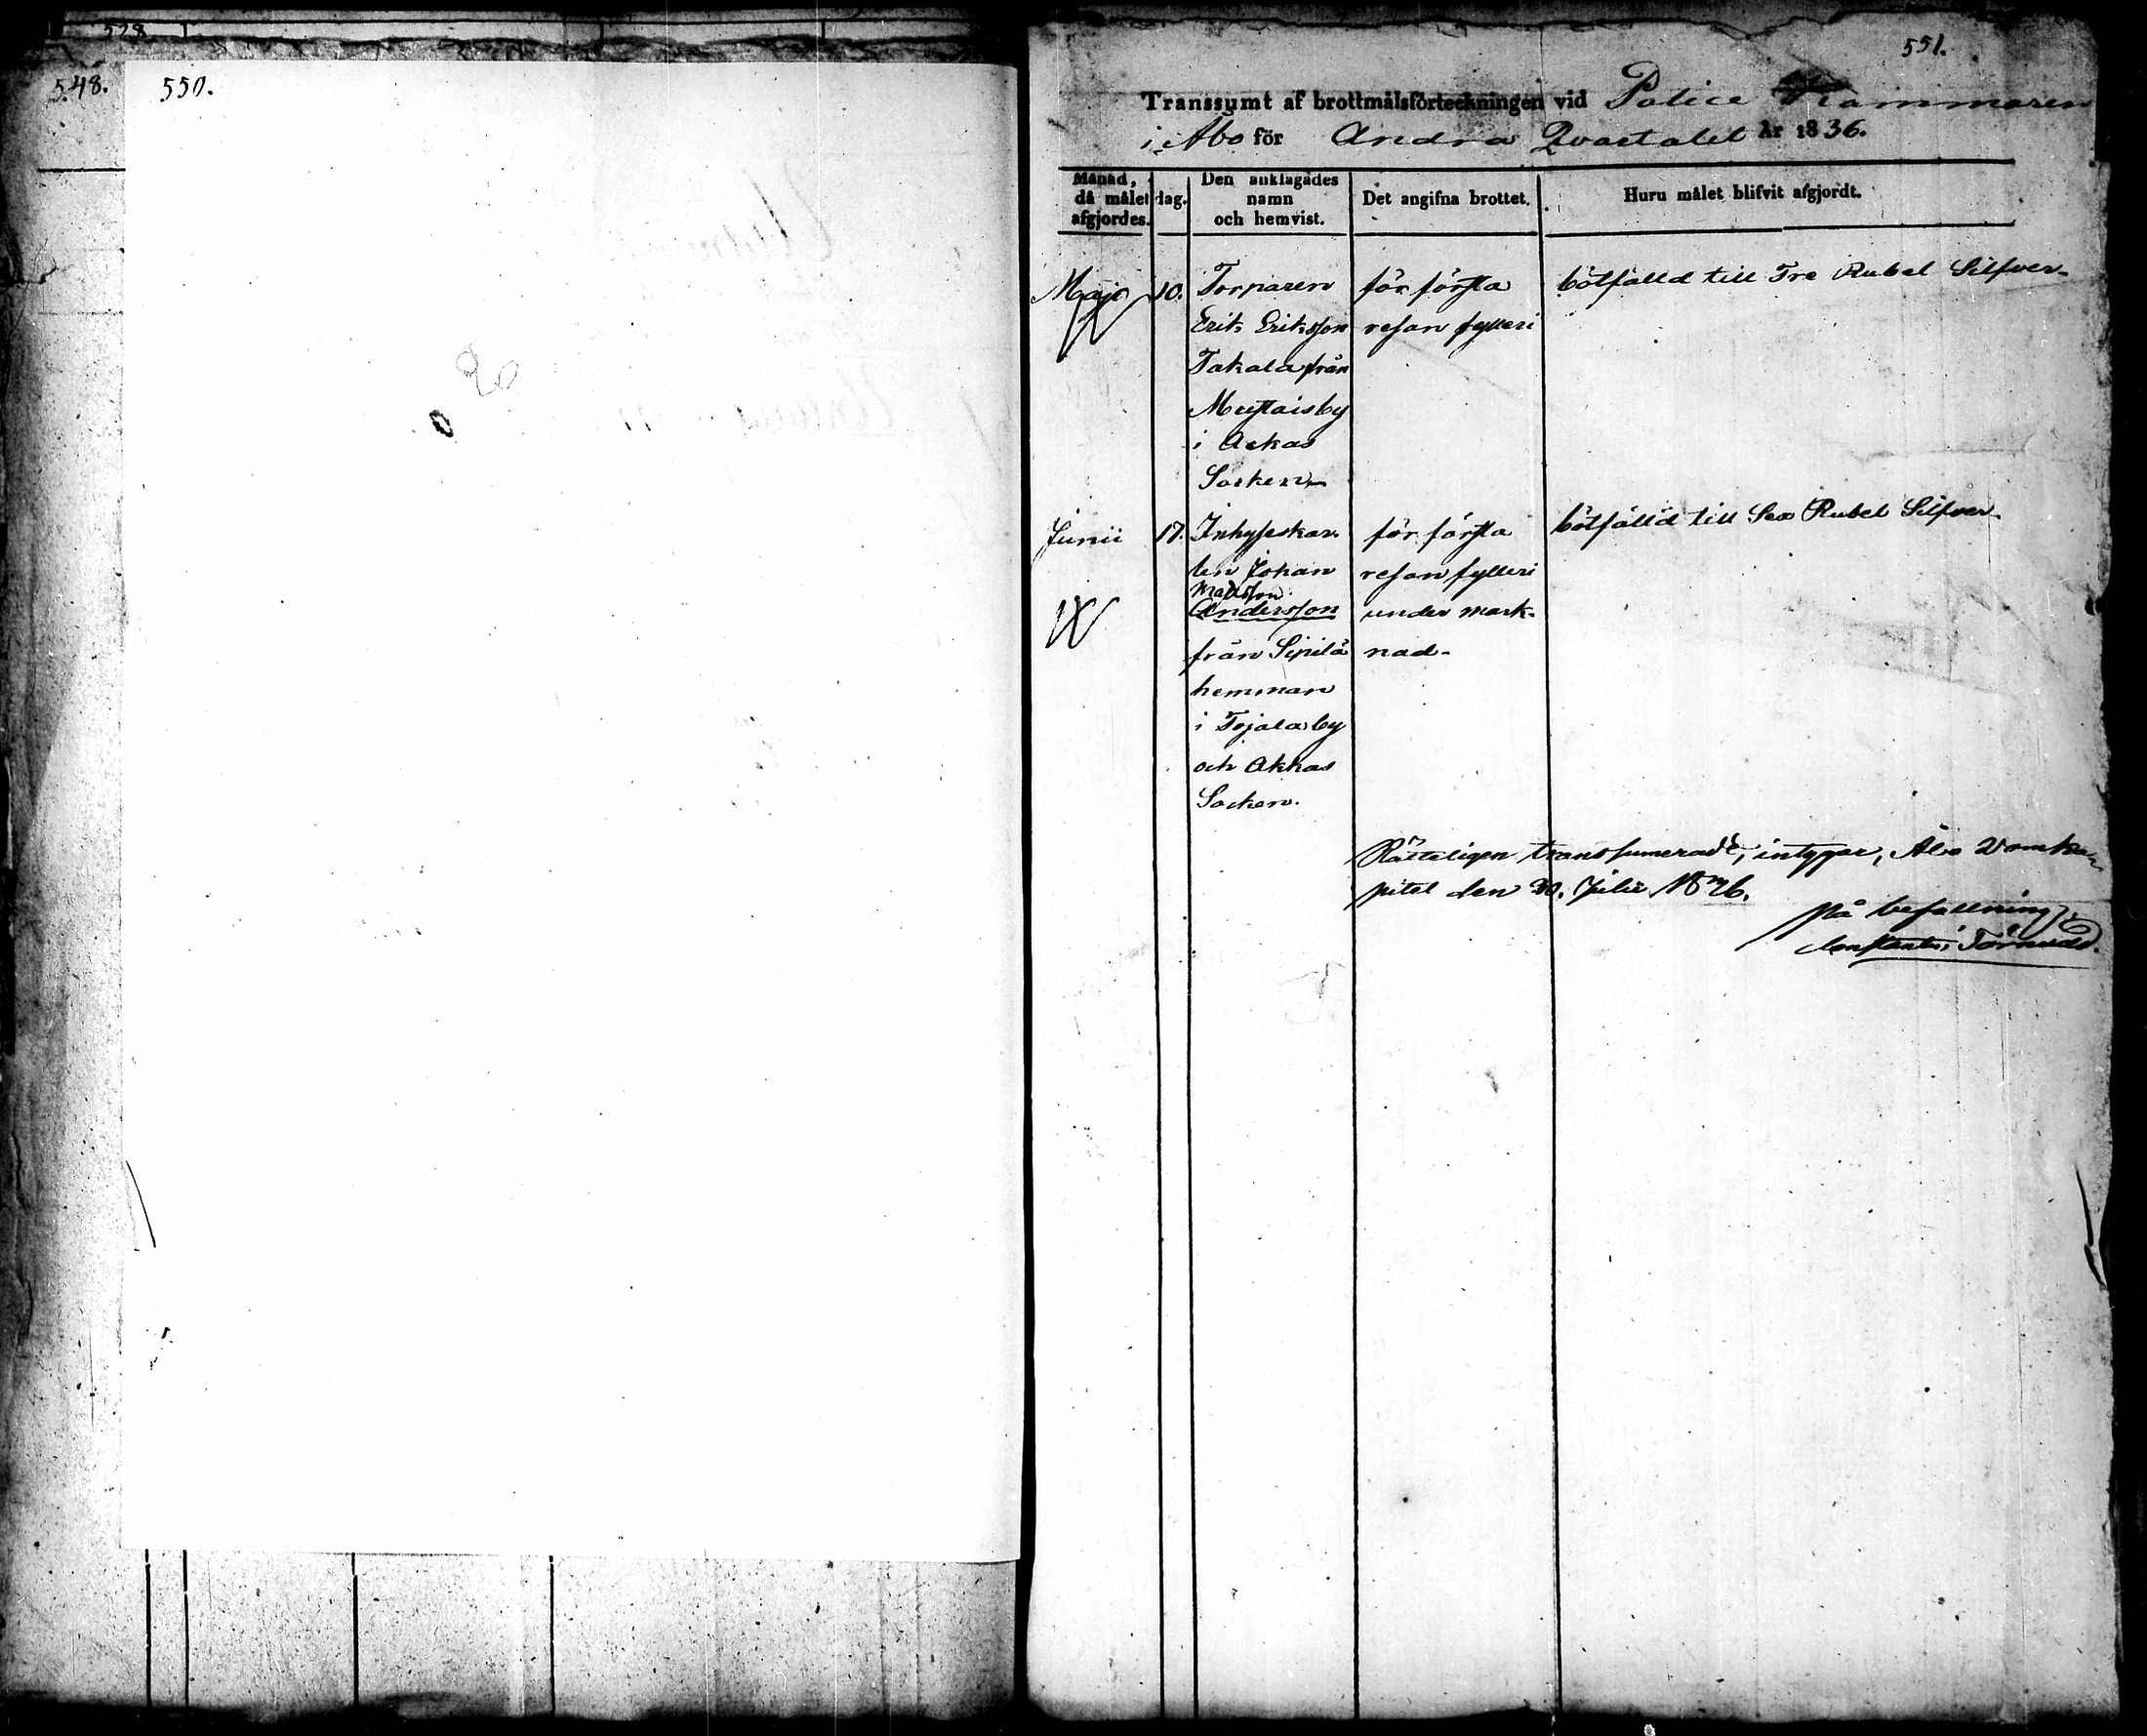 528
548.
550.
551.
Transsumt af brottmålsförteckningen vid Police Kammaren
i Åbo för Andra Qvartalet År 1836.
Månad, då målet afgjordes.
dag.
Den anklagades namn och hemvist.
Det angifna brottet.
Huru målet blifvit afgjordt.
Maji 10. Torparen för första bötfälld till Tre Rubel Silfver.
Erik Eriksson resan fylleri
Takala från
by
i Ackas
Socken
Junii 17. Inhyseskar- för första bötfälld till Sex Rubel Silfver.
len Johan resan fylleri
Mattsson
Andersson under mark-
från Sipilä nad.
hemman
i Tojala by
och Akkas
Socken.
Rätteligen transsumeradt, intygar, Åbo Domka-
pitel den 30. Julii
På befallning:
Törnudd.